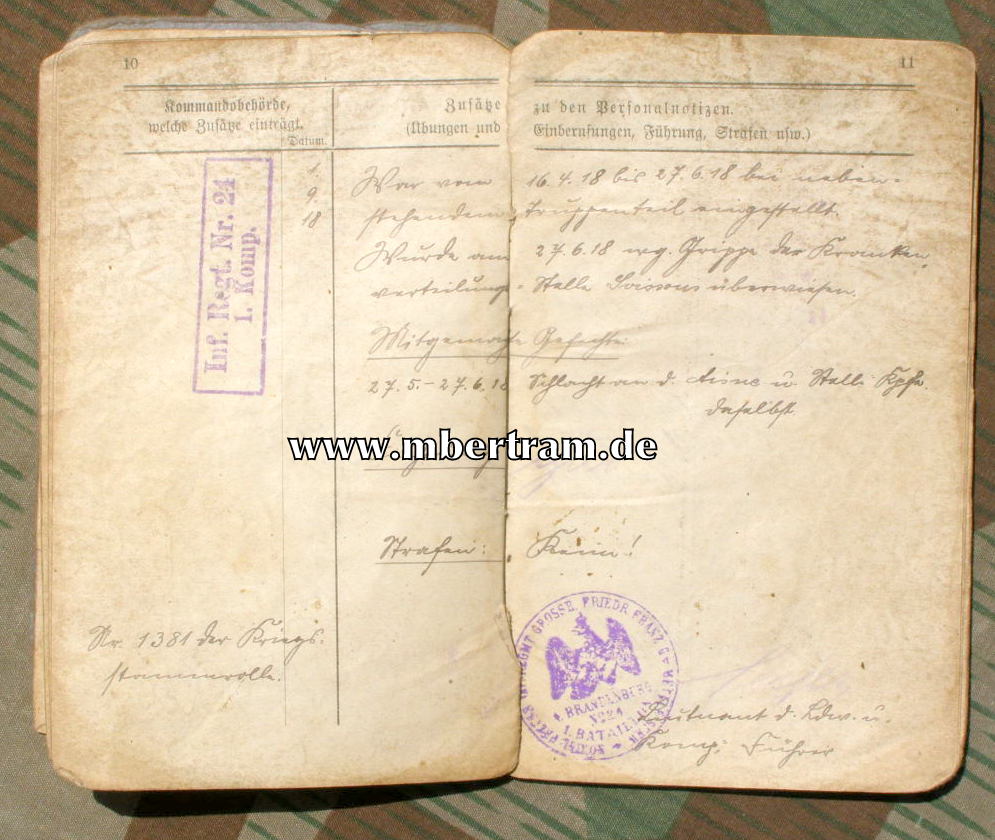 10
11
Kommandobehörde,
welche Zusätze einträgt.
Datum.
Zusätze zu den Personalnotizen.
(Übungen und Einberufungen, Führung, Strafen usw.)
Inf. Regt. Nr. 24
1. Komp.
1.
9.
18
War vom 16.4.18 bis 27.6.18 bei neben-
stehendem Truppenteil eingestellt.
Wurde am 27.6.18 wg. Grippe der Kranken
verteilungs- Stelle überwiesen.
Mitgemachte Gefechte:
27.5.-27.6.18 Schlacht an d. Aisne u. Stell. Kpfe.
daselbst.
www.mbertram.de
Strafen: Keine!
Nr. 1381 der Kriegs-
stammrolle.
GROSSH. FRIEDR. FRANZ
BRANDENBERG
No 24
1. BATAILLON
Leutnant d. Ldw. u.
Komp. Führer